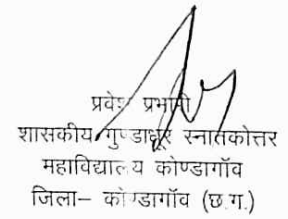 प्रवेश प्रभारी
शासकीय गुण्डाधुर स्नातकोत्तर
महाविद्यालय कोण्डागॉव
जिला– कोण्डागॉव (छ.ग.)